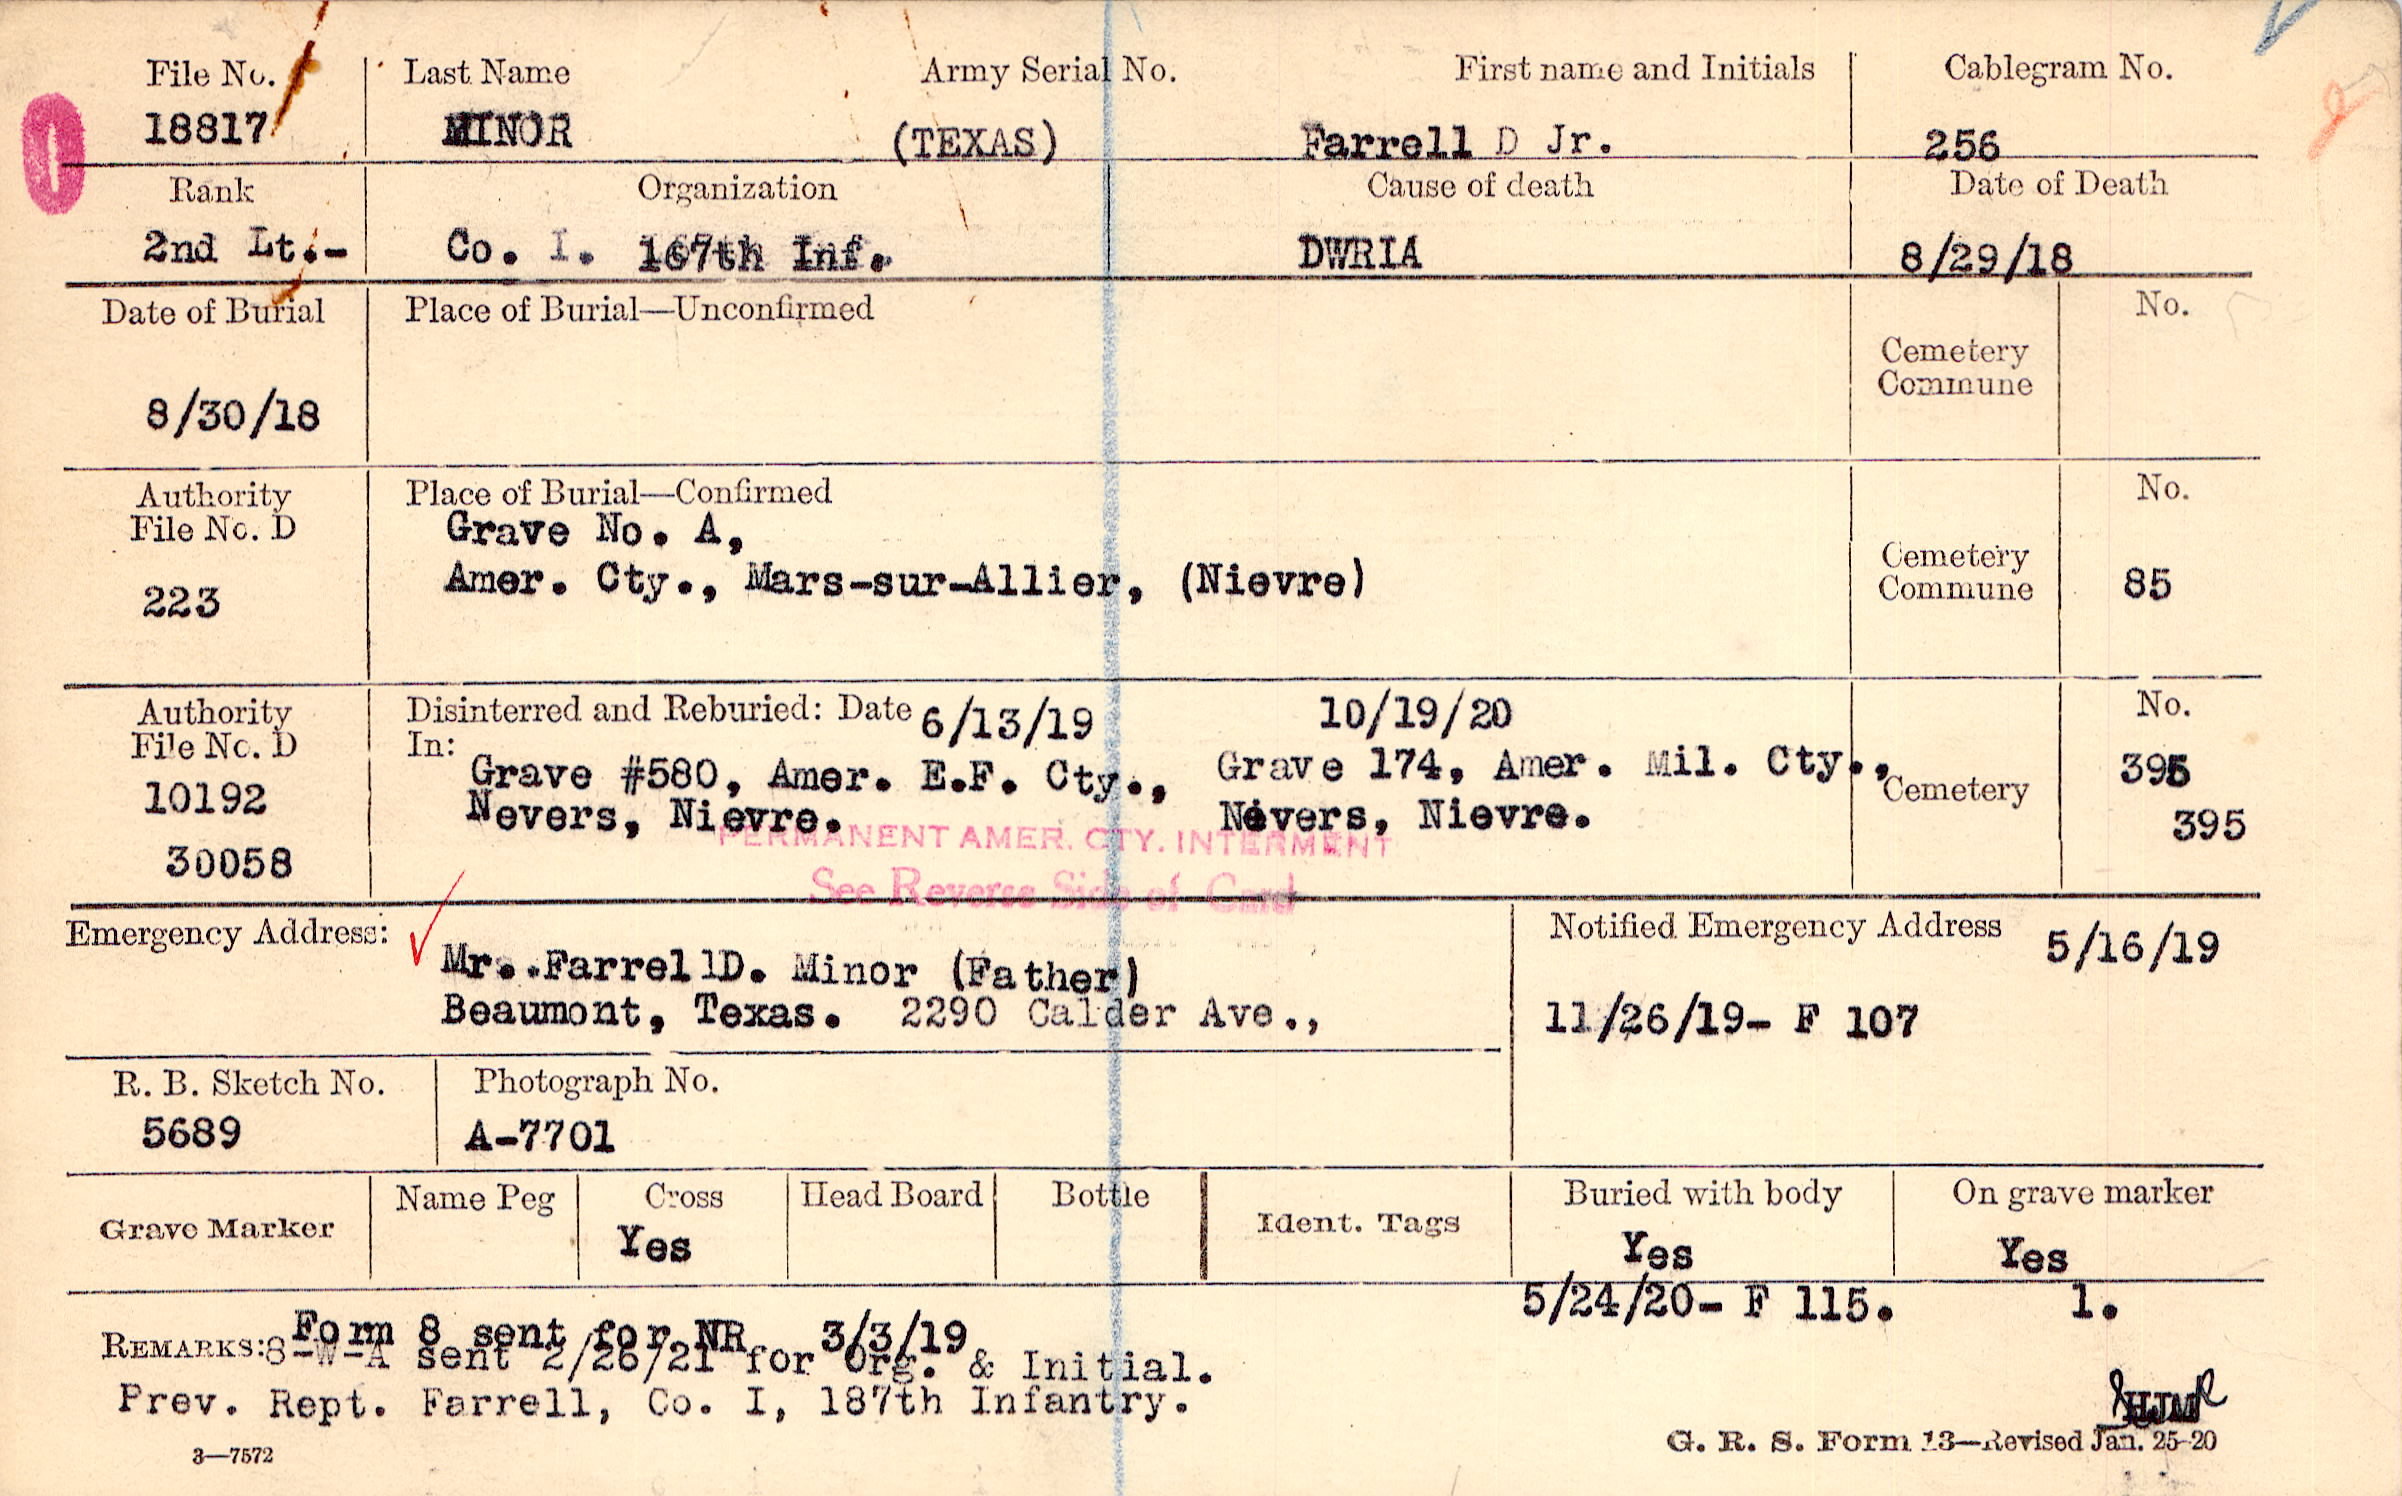 File No. Last Name Army Serial No. First name and Initials Cablegram No.
18817 MINOR (TEXAS) Farrell D Jr. 256
Rank Organization Cause of death Date of Death
2nd Lt.- Co. I. 167th Inf. DWRIA 8/29/18
Date of Burial Place of Burial—Unconfirmed No.
Cemetery
Commune
8/30/18
Authority Place of Burial—Confirmed No.
File No. D Grave No. A,
223 Amer. Cty., Mars-sur-Allier, (Nievre) Cemetery
Commune 85
Authority Disinterred and Reburied: Date 6/13/19 10/19/20 No.
File No. D In:
10192 Grave #580, Amer. E.F. Cty., Grave 174, Amer. Mil. Cty., Cemetery 395
Nevers, Nievre. Nevers, Nievre. 395
PERMANENT AMER. CTY. INTERMENT
30058
See Reverse Side of Card
Emergency Address: Notified Emergency Address 5/16/19
Mr. Farrell D. Minor (Father)
Beaumont, Texas. 2290 Calder Ave., 11/26/19- F 107
R. B. Sketch No. Photograph No.
5689 A-7701
Grave Marker Name Peg Cross Head Board Bottle Ident. Tags Buried with body On grave marker
Yes Yes Yes
5/24/20- F 115. 1.
Form 8 sent for NR 3/3/19
REMARKS: 8-W-A sent 2/26/21 for Org. & Initial.
Prev. Rept. Farrell, Co. I, 187th Infantry.
HJM
3—7572 G. R. S. Form 13—Revised Jan. 25-20